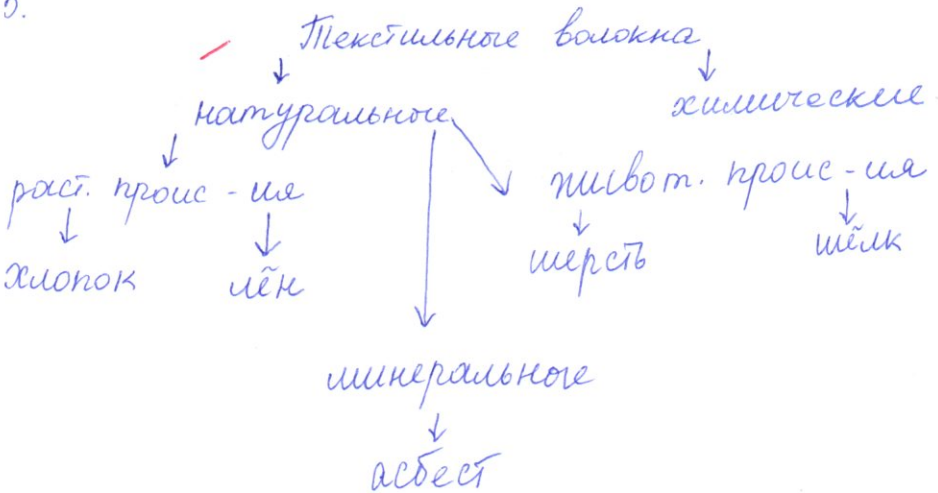 5.
Текстильные волокна
натуральные химические
раст. проис-ия живот. проис-ия
хлопок лён шерсть шёлк
минеральные
асбест